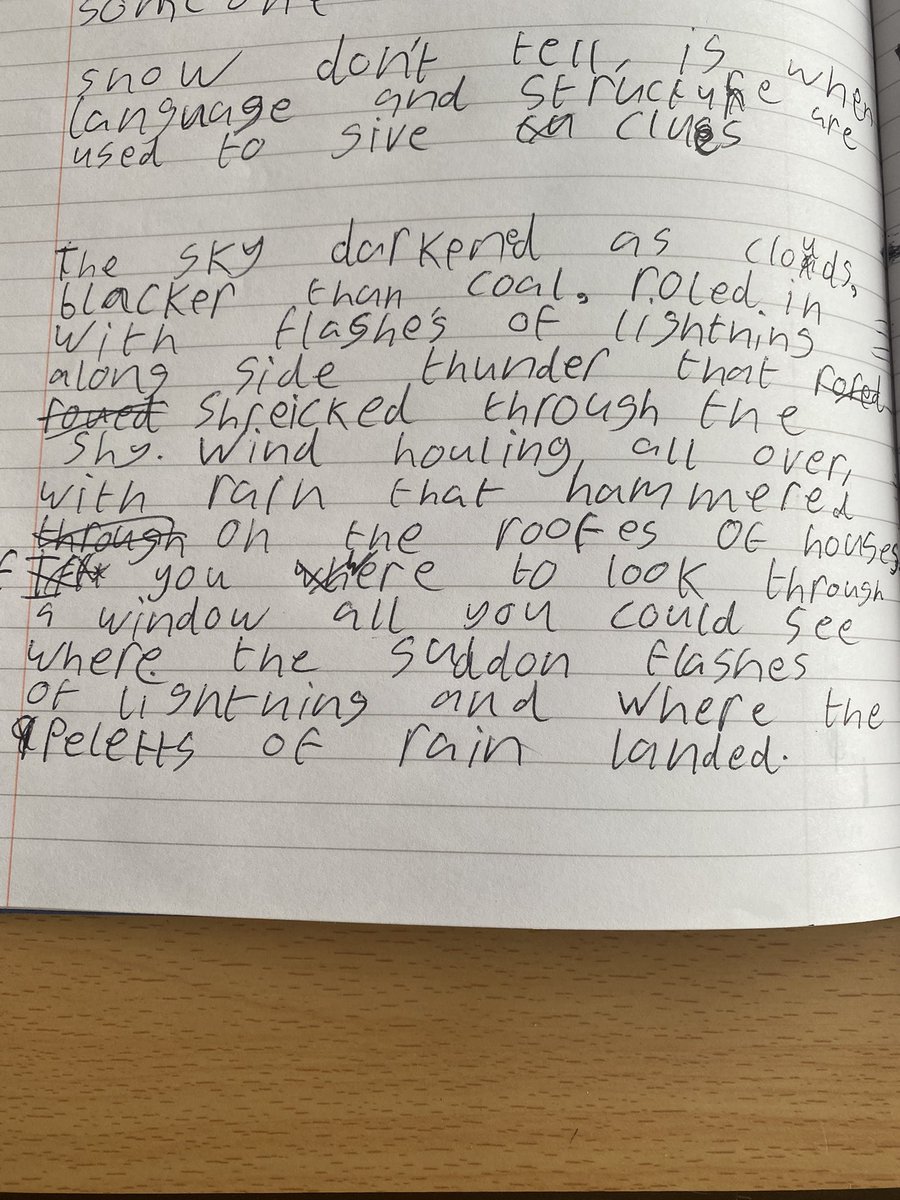 someone
show don't tell, is when
language and structure are
used to give clues
the sky darkened as clouds,
blacker than coal, roled in
with flashes of lightning
along side thunder that rored
roued shreicked through the
shy. wind houling, all over,
with rain that hammered
through on the roofes of houses
If you where to look through
a window all you could see
where the suddon flashes
of lightning and where the
peletts of rain landed.